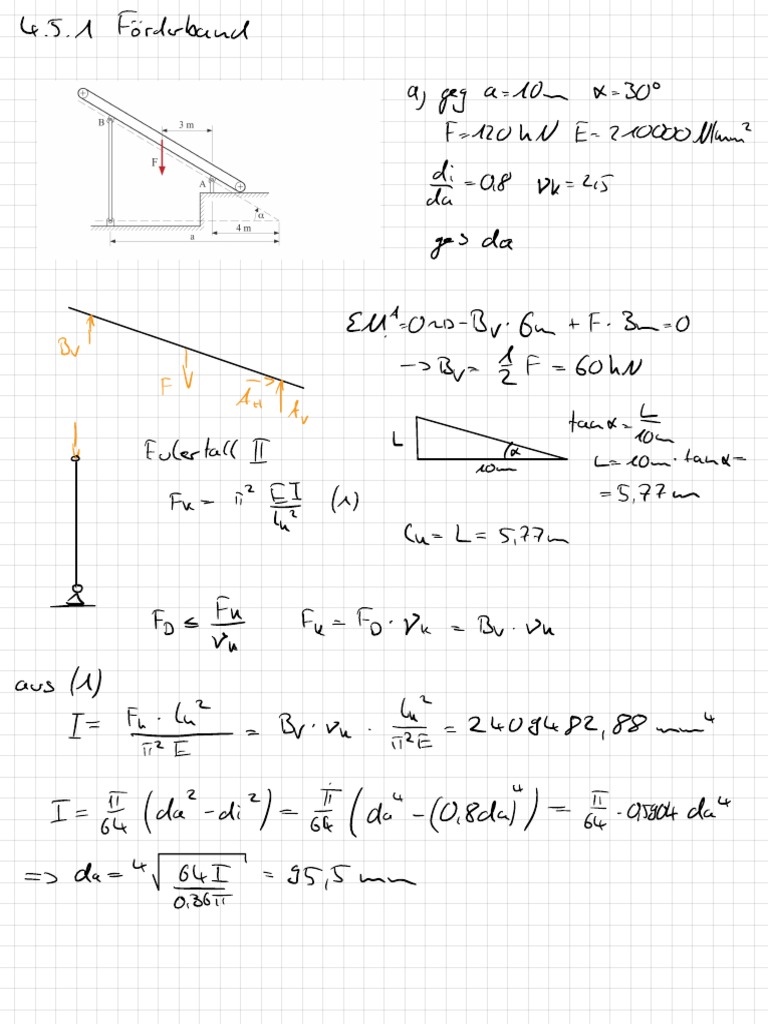 4.5.1 Förderband
a) geg a=10m α=30°
F=120kN E=210000N/mm²
di/da=0,8 νk=2,5
ges da
B
3 m
F
A
α
4 m
a
ΣM^A=0 ~> -Bv·6m + F·3m=0
-> Bv= 1/2 F = 60kN
Bv
F
AH
Av
L
α
10m
tanα= L/10m
L=10m·tanα=
=5,77m
Eulerfall II
Fk= π² EI/lk² (1)
lk= L= 5,77m
FD ≤ Fk/νk Fk= FD·νk = Bv·νk
aus (1)
I= Fk·lk²/π²E = Bv·νk· lk²/π²E = 2409482,88 mm⁴
I= π/64 (da²-di²)= π/64 (da⁴-(0,8da)⁴)= π/64 ·0,5904 da⁴
=> da= ⁴√64I/0,36π = 95,5mm